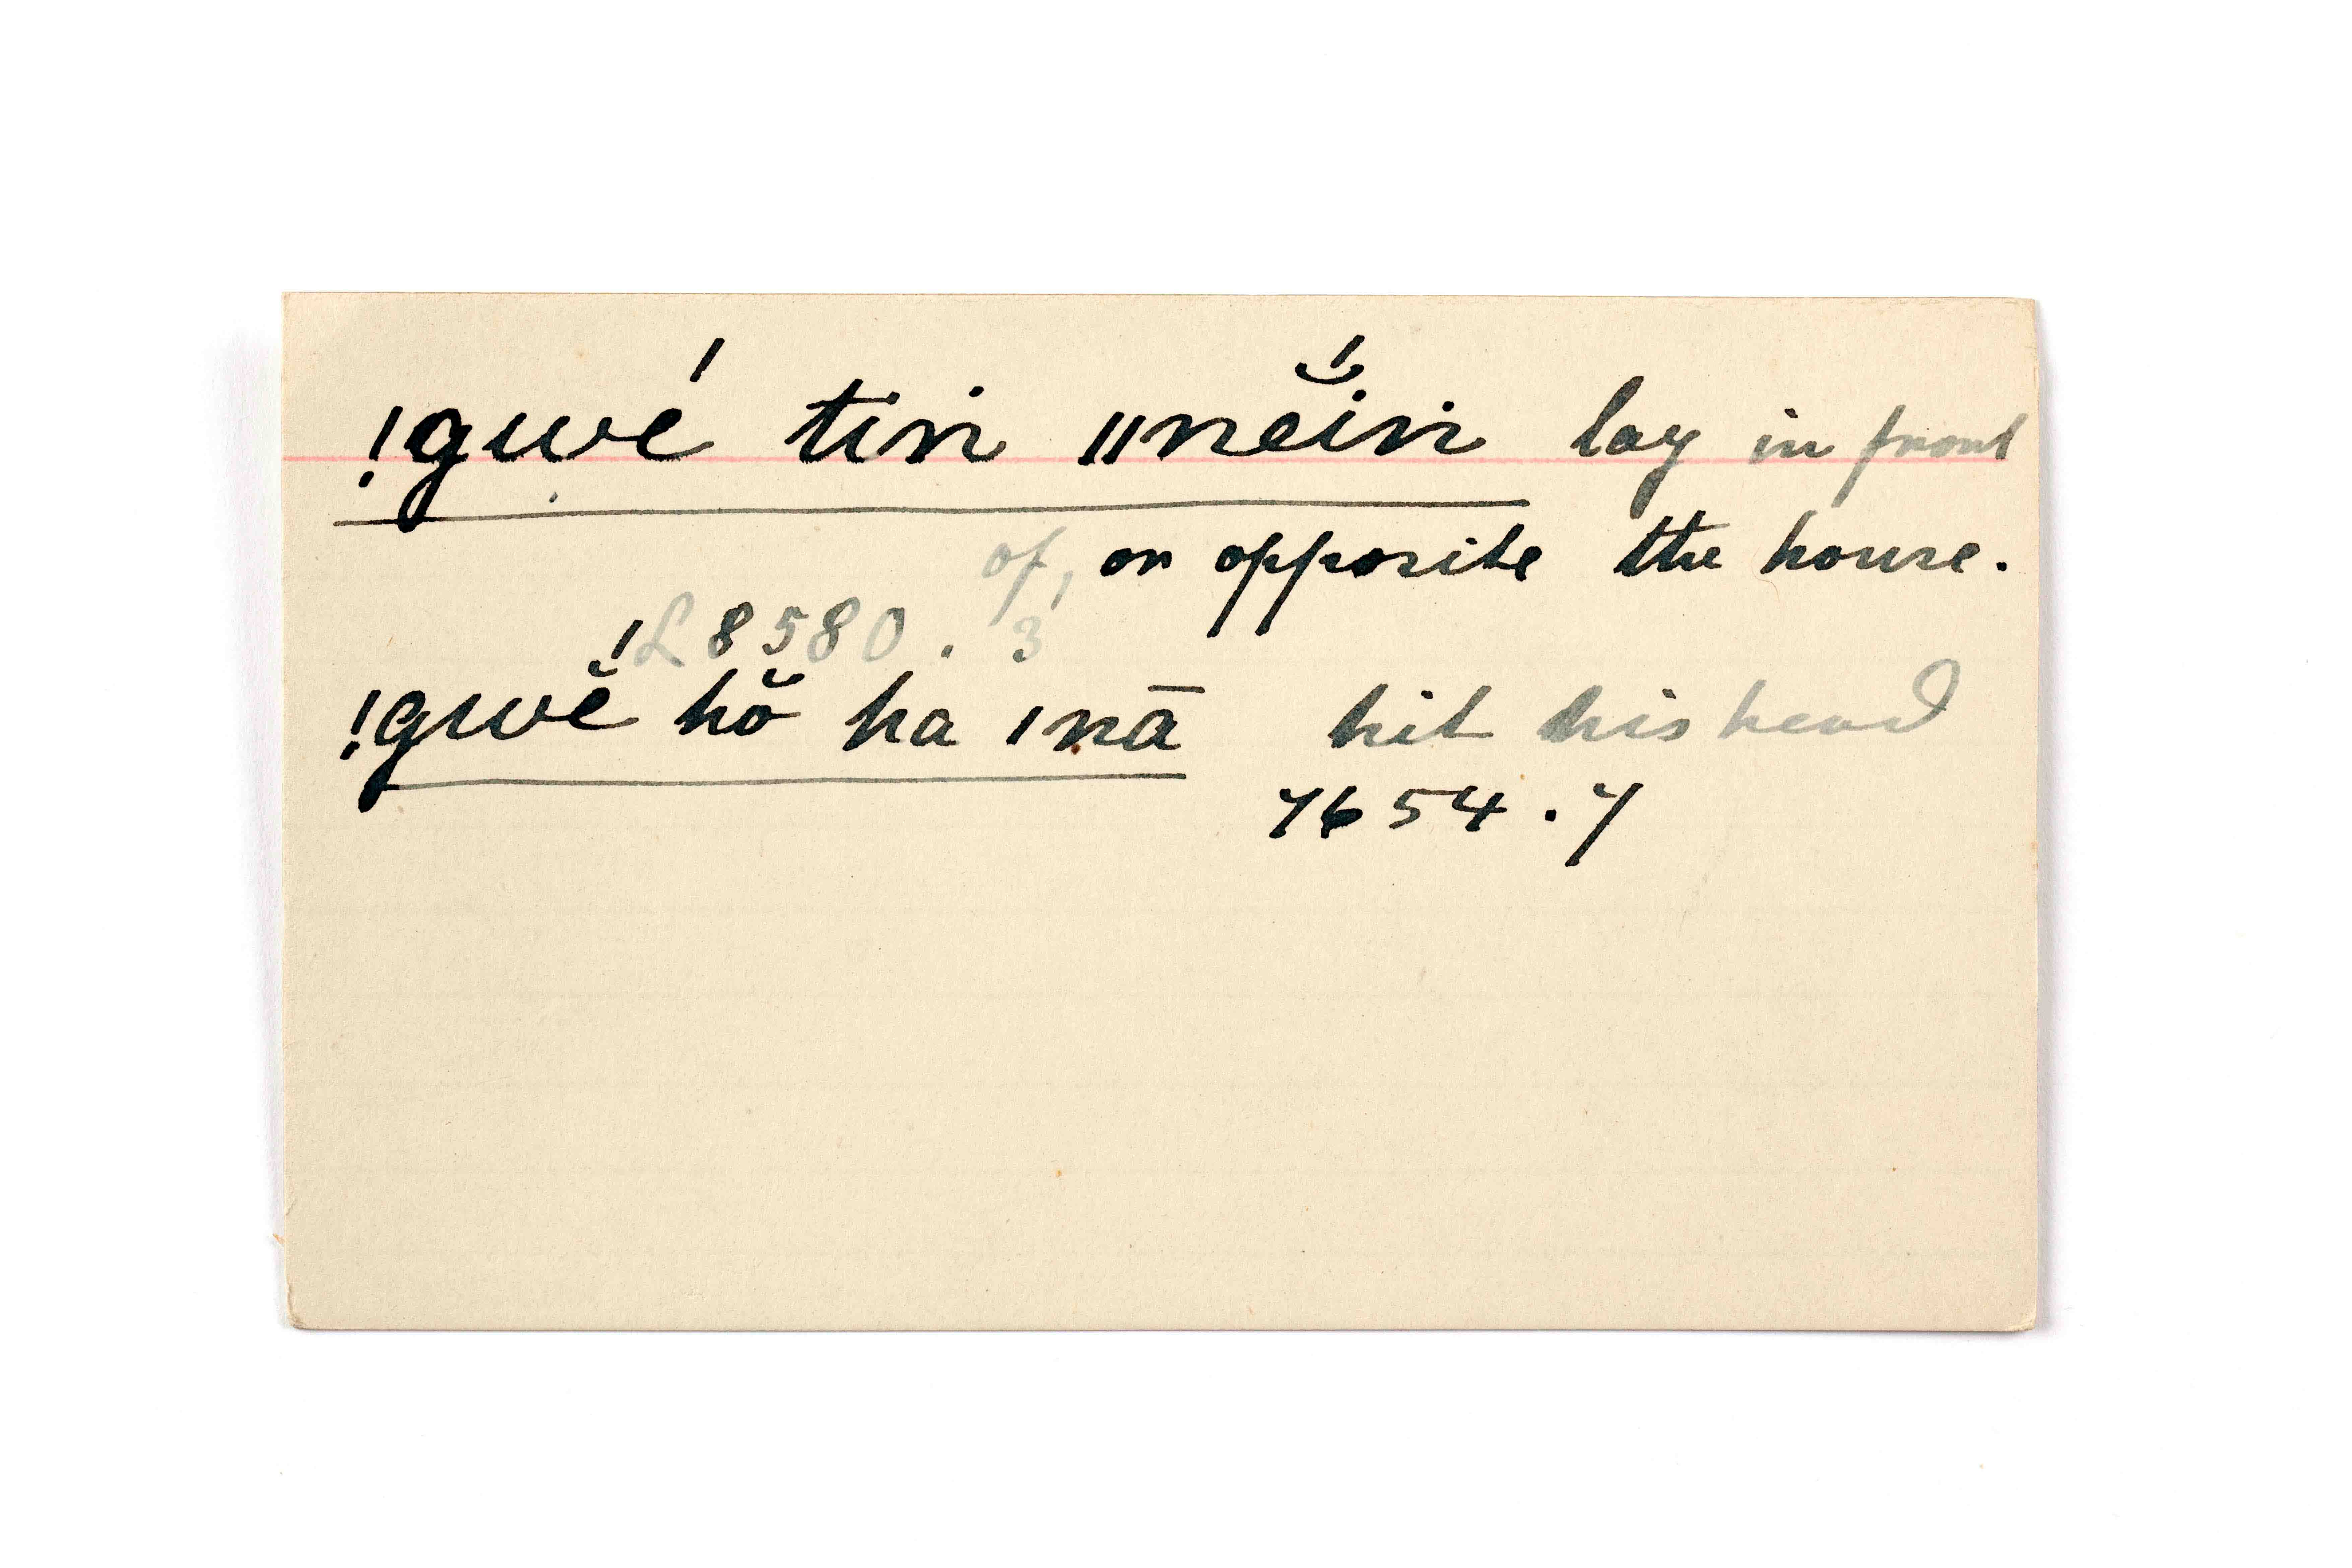 !gwé tin ǁnĕ́in lay in front
of, or opposite the house.
£8580.3
!gwĕ́ hŏ ha ǀnā hit his head
7654.7